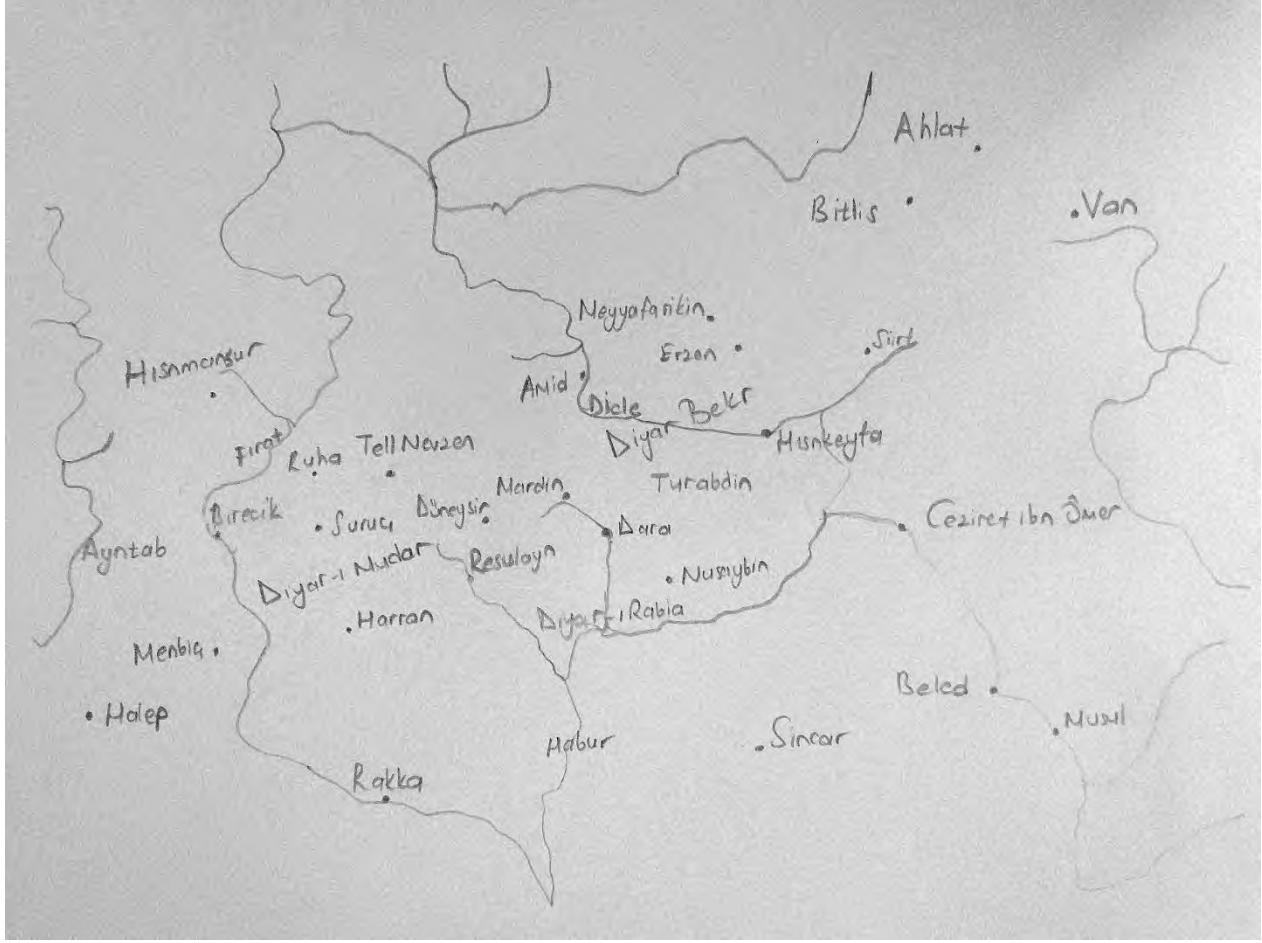 Ahlat
Bitlis
Van
Meyyafarikin
Erzen
Siirt
Hısnmansur
Amid
Dicle
Diyar Bekr
Hısnkeyfa
Fırat
Ruha
Tell Nevzen
Mardin
Turabdin
Birecik
Suruç
Düneysir
Dara
Ceziret ibn Ömer
Ayntab
Diyar-ı Mudar
Resulayn
Nusaybin
Harran
Diyar-ı Rabia
Menbiç
Beled
Halep
Musul
Habur
Sincar
Rakka